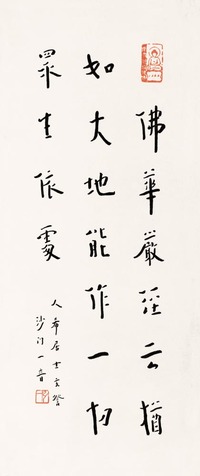 佛華嚴經云猶
如大地能作一切
眾生依處
人希居士玄鑒
沙門一音